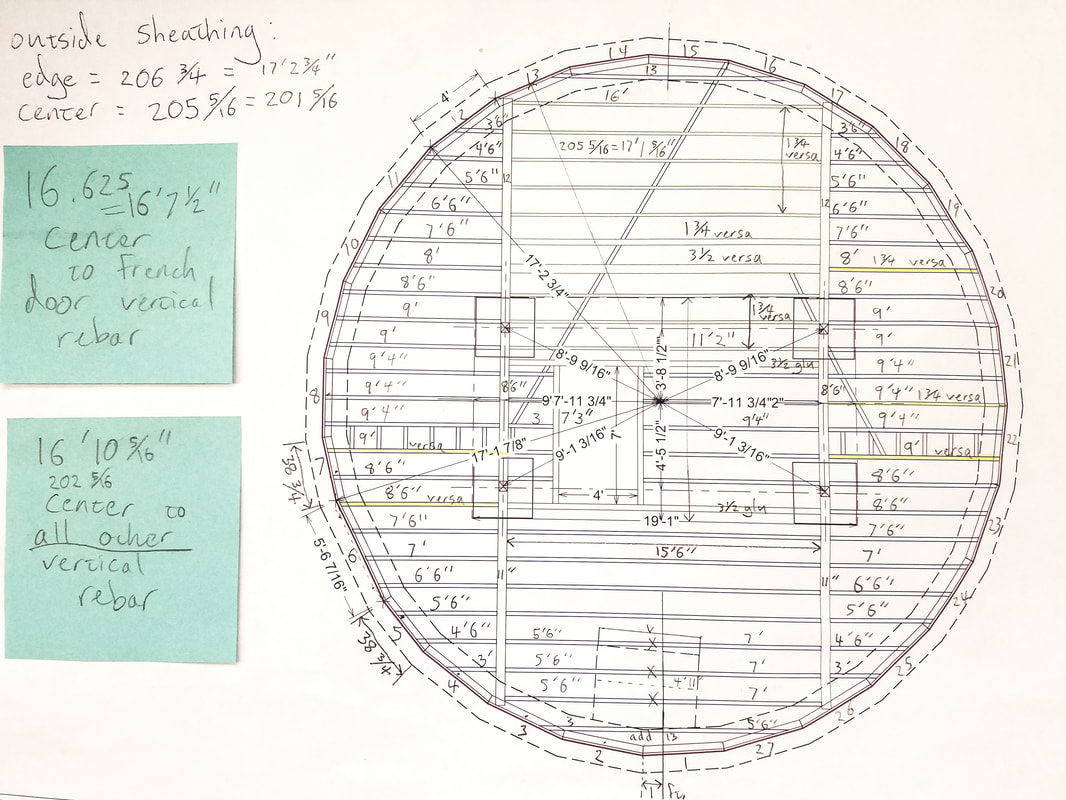 outside sheathing:
edge = 206 3/4 = 17'2 3/4"
center = 205 5/16 = 201 5/16
16.625
=16'7 1/2"
Center
to French
door vertical
rebar
16'10 5/16"
202 5/16
Center to
all other
vertical
rebar
14
15
13
13
16
4'
12
16'
17
3'6"
3'6"
4'6"
205 5/16=17'1 5/16"
1 3/4
versa
4'6"
18
11
5'6"
12
5'6"
6'6"
12
6'6"
19
7'6"
1 3/4 versa
7'6"
10
8'
3 1/2 versa
8'
1 3/4 versa
17'-2 3/4"
8'6"
8'6"
20
9'
1 3/4
versa
9'
9
9'
3'-8 1/2"
11'2"
9'
21
9'4"
8'-9 9/16"
8'-9 9/16"
3 1/2 glu
9'4"
9'4"
8'6"
8'6"
9'4"
1 3/4 versa
8
9'7'-11 3/4"
7'-11 3/4"2"
9'4"
3
7'3"
7'
9'4"
9'4"
9'
versa
17'-1 7/8"
9'-1 3/16"
4'-5 1/2"
9'-1 3/16"
9'
versa
22
38 3/4
7
8'6"
8'6"
8'6"
versa
4'
3 1/2 glu
8'6"
7'6"
19'-1"
7'6"
23
5'-6 7/16"
6
7'
15'6"
7'
6'6"
11"
11"
6'6"
5'6"
5'6"
24
38 3/4
5
4'6"
5'6"
7'
4'6"
3'
5'6"
7'
3'
25
4
5'6"
4'11
7'
26
3
3
5'6"
add
13
2
1
27